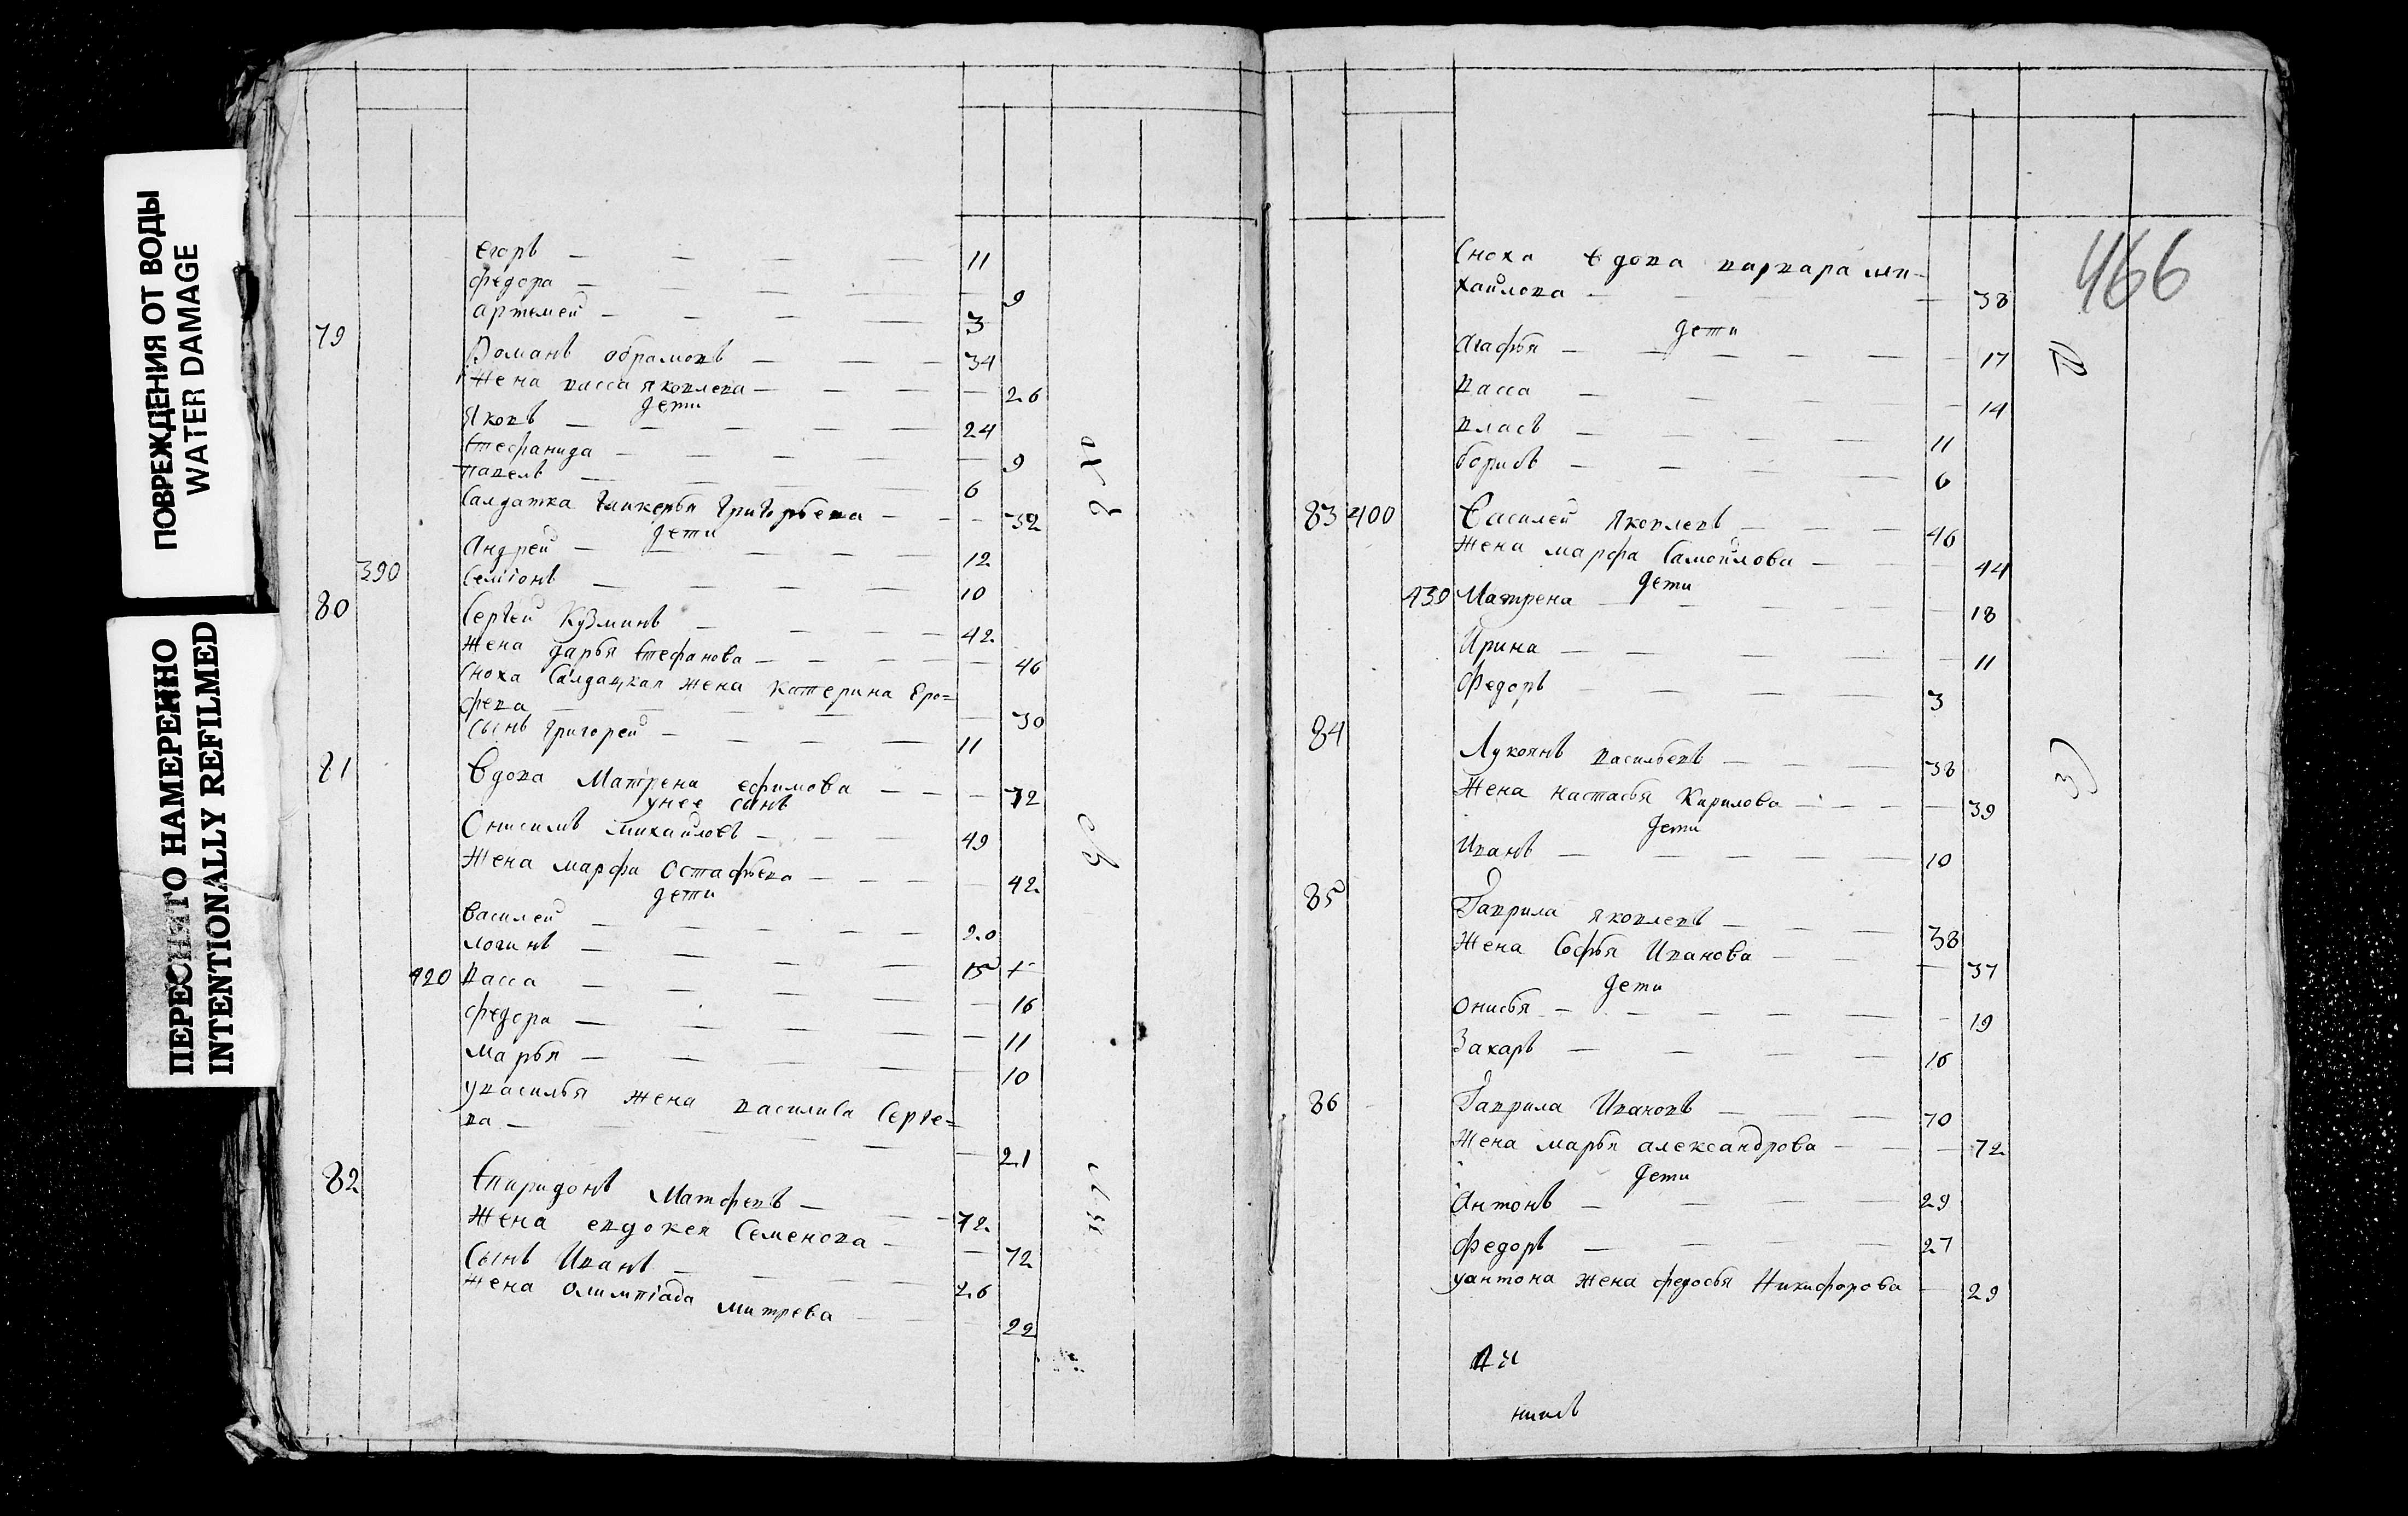 ПОВРЕЖДЕНИЯ ОТ ВОДЫ
WATER DAMAGE
ПЕРЕСНЯТО НАМЕРЕННО
INTENTIONALLY REFILMED
егоръ — 11
федора — 9
артемей — 3
79 Романъ обрамовъ — 34
Жена васса яковлева — 26
дети
Яковъ — 24
Степанида — 9
павелъ — 6
Салдатка Григорьева — 32
дети
Андрей — 12
390 Семіонъ — 10
80 Сергей Кузминъ — 42
Жена дарья Стефанова — 46
Сноха Салдацкая жена Катерина Еро=
феева — 30
Сынъ Григорей — 11
81 Вдова Матрена ефимова — 72
унее Сынъ
Онисимъ михайловъ — 49
Жена марфа Остафьева — 42
дети
василей — 20
логинъ — 15 +
420 Васса — 16
федора — 11
Марья — 10
увасилья жена василиса Серге=
ва — 21
82 Спиридонъ Матфевъ — 72
Жена евдокея Семенова — 72
Сынъ Иванъ — 26
жена олимпіада митрева — 22
466
Сноха вдова варвара ми-
хайлова — 38
дети
Агафья — 17
Васса — 14
власъ — 11
борисъ — 6
83 400 Василей Яковлевъ — 46
Жена марфа Самойлова — 44
дети
430 Матрена — 18
Ирина — 11
Федоръ — 3
84 Лукоянъ васильевъ — 38
Жена настасья Кирилова — 39
дети
Иванъ — 10
85 Гаврила яковлевъ — 38
Жена Софья Иванова — 37
дети
онисья — 19
Захаръ — 16
86 Гаврила Ивановъ — 70
Жена марья александрова — 72
дети
Антонъ — 29
федоръ — 27
уантона жена федосья Никифорова — 29